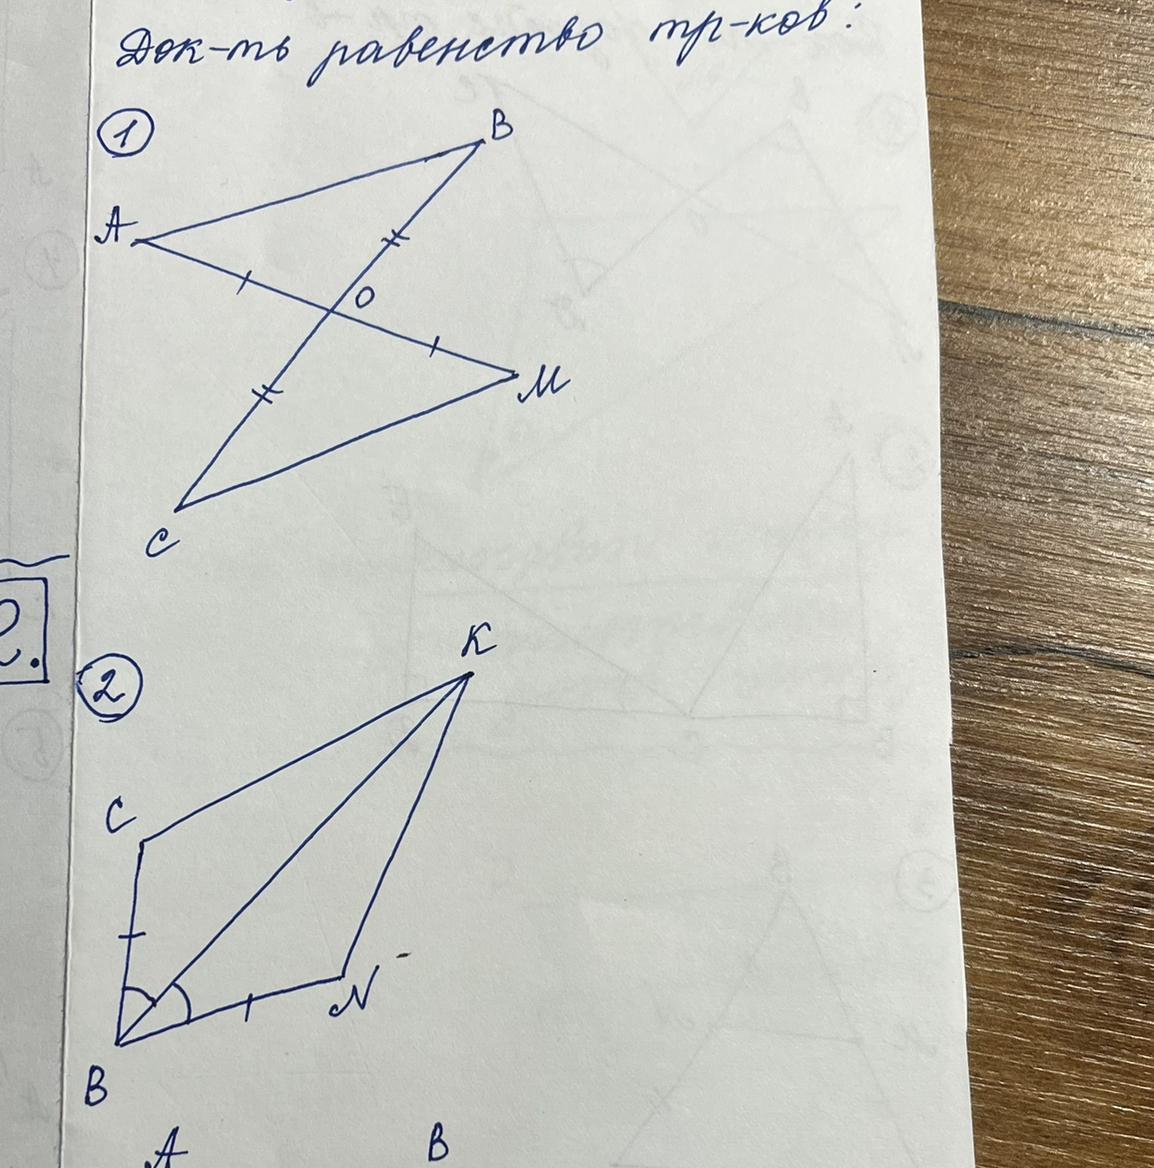 Док-ть равенство тр-ков:
1
B
A
O
M
C
2.
2
K
C
N
B
A B